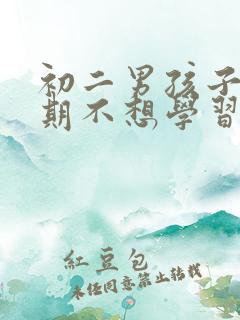 初二男孩子
期不想學習
紅豆包
未任同意禁止轉載